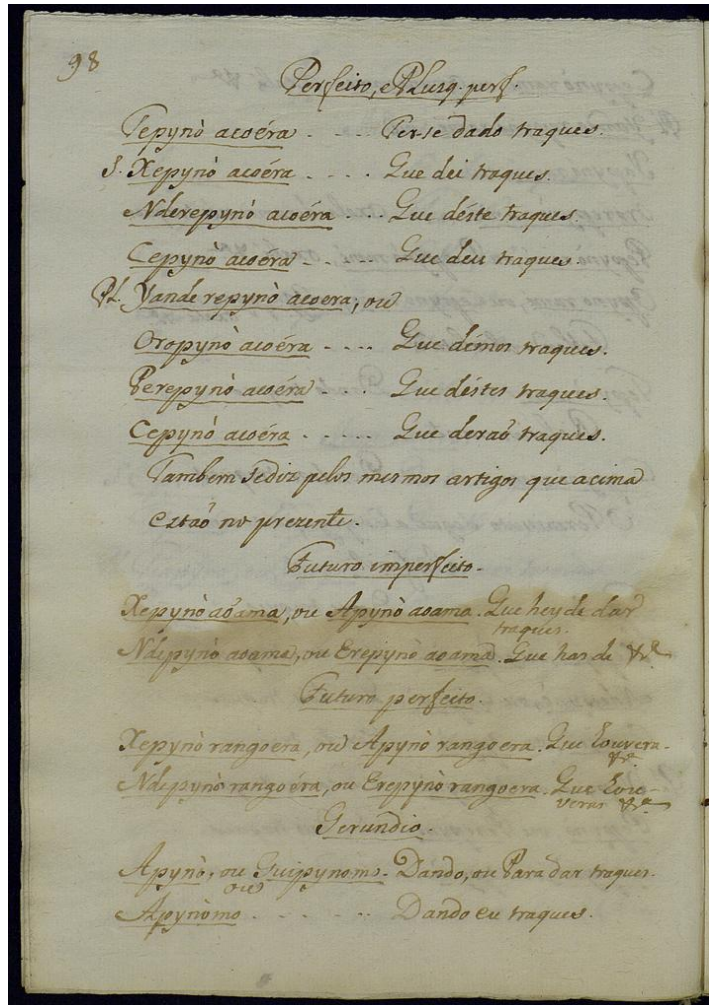 98
Perfeito, e Plusq. perf.
Tepynò acoéra . . . . . Ter-se dado traques.
S. Xepynò acoéra . . . . Que dei traques.
Nderepynò acoéra . . . Que déste traques.
Cepynò acoéra . . . . . Que deu traques.
Pl. Yande repynò acoera, ou
Oropynò acoéra . . . . Que démos traques.
Perepynò acoéra . . . . Que déstes traques.
Cepynò acoéra . . . . . Que deraõ traques.
Tambem se diz pelos mesmos artigos que acima
estaõ no prezente.
Futuro imperfeito.
Xepynò aoama, ou Apynò aoama. Que hey de dar
traques.
Ndepynò aoama, ou Erepynò aoama. Que has de &c.ª
Futuro perfeito.
Xepynò rangoera, ou Apynò rangoera. Que houvera
&c.ª
Ndepynò rangoéra, ou Erepynò rangoera. Que hou-
veras &c.ª
Gerundio.
Apynò, ou Guipynomo. Dando, ou Para dar traques.
ou
Apynòmo . . . . . . Dando eu traques.